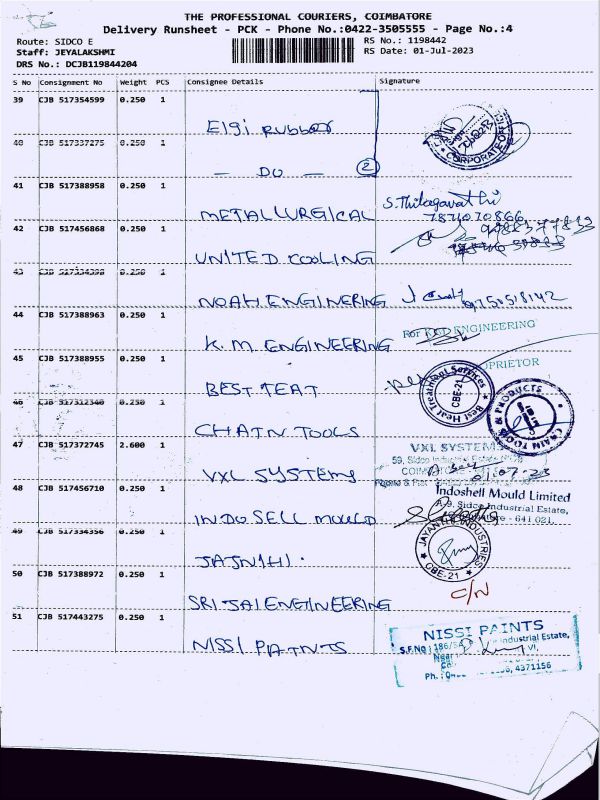 THE PROFESSIONAL COURIERS, COIMBATORE
Delivery Runsheet - PCK - Phone No.:0422-3505555 - Page No.:4
Route: SIDCO E
RS No.: 1198442
Staff: JEYALAKSHMI
RS Date: 01-Jul-2023
DRS No.: DCJB119844204
S No Consignment No Weight PCS Consignee Details Signature
39 CJB 517354599 0.250 1
Elgi Rubber
40 CJB 517337275 0.250 1
— DO — 2
CORPORATE OFFICE
41 CJB 517388958 0.250 1
METALLURGICAL
S. Thilagavathi
7871070866
42 CJB 517456868 0.250 1
UNITED COOLING
43 CJB 517334398 0.250 1
NOAH ENGINERING
44 CJB 517388963 0.250 1
K. M. ENGINEERING
ENGINEERING
45 CJB 517388955 0.250 1
PROPRIETOR
BEST TEAT
Best Heat Treatment Services
CBE-21
46 CJB 517312340 0.250 1
CHAIN TOOLS
CHAIN TOOLS & PRODUCTS
47 CJB 517372745 2.600 1
VXL SYSTEMS
VXL SYSTEMS
59, Sidco Industrial Estate
01.07.23
48 CJB 517456710 0.250 1
INDO SELL MOULD
Indoshell Mould Limited
A-9, Sidco Industrial Estate,
- 641 021.
49 CJB 517334356 0.250 1
JAJNIHI.
JAYANTHI INDUSTRIES
CBE-21
50 CJB 517388972 0.250 1
SRI JAI ENGINEERING
C/N
51 CJB 517443275 0.250 1
NISSI PAINTS
NISSI PAINTS
S.F.NO : 186/ Industrial Estate,
Near
Ph. : 4371156